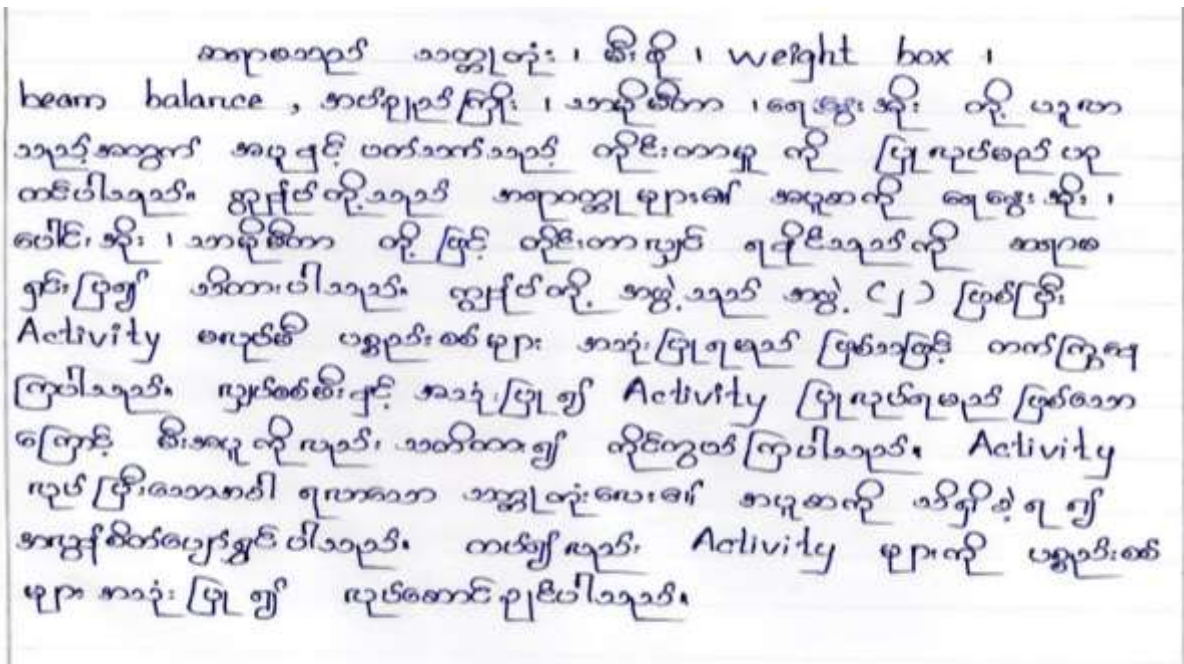 ဆရာမသည် သတ္တုတုံး ၊ မီးဖို ၊ weight box ၊
beam balance , အပ်ချည်ကြိုး ၊ သာမိုမီတာ ၊ ရေနွေးအိုး တို့ ယူလာ
သည့်အတွက် အပူနှင့် ပတ်သက်သည့် တိုင်းတာမှု ကို ပြုလုပ်မည် ဟု
ထင်ပါသည်။ ကျွန်ုပ်တို့သည် အရာဝတ္ထု များ၏ အပူဆကို ရေနွေးအိုး ၊
ပေါင်းအိုး ၊ သာမိုမီတာ တို့ ဖြင့် တိုင်းတာလျှင် ရနိုင်သည်ကို ဆရာမ
ရှင်းပြ၍ သိထားပါသည်။ ကျွန်ုပ်တို့ အဖွဲ့သည် အဖွဲ့ (၂) ဖြစ်ပြီး
Activity မလုပ်မီ ပစ္စည်းစစ် များ အသုံးပြုရမည် ဖြစ်သဖြင့် တက်ကြွနေ
ကြပါသည်။ လျှပ်စစ်မီးနှင့် အသုံးပြု ၍ Activity ပြုလုပ်ရမည် ဖြစ်သော
ကြောင့် မီးအပူ ကို လည်း သတိထား၍ ကိုင်တွယ် ကြပါသည်။ Activity
လုပ် ပြီးသောအခါ ရလာသော သတ္တုတုံးလေး၏ အပူဆကို သိရှိခဲ့ ရ ၍
အလွန်စိတ်ပျော်ရွှင် ပါသည်။ ထပ်၍ လည်း Activity များကို ပစ္စည်းစစ်
များ အသုံး ပြု ၍ လုပ်ဆောင် ချင်ပါသည်။